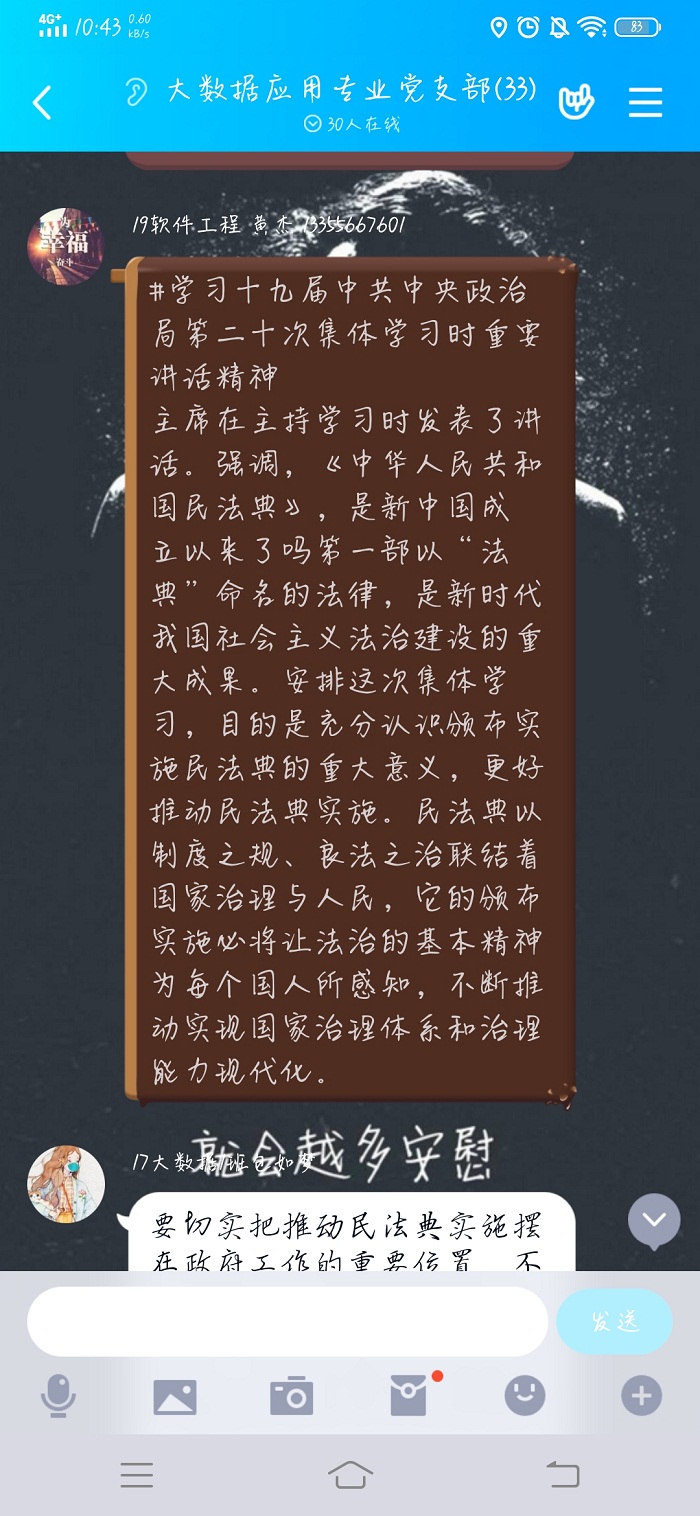 4G+ 10:43 0.60 KB/s 83
大数据应用专业党支部(33)
30人在线
为
幸福
奋斗
19软件工程 黄杰 13355667601
#学习十九届中共中央政治
局第二十次集体学习时重要
讲话精神
主席在主持学习时发表了讲
话。强调，《中华人民共和
国民法典》，是新中国成
立以来了吗第一部以“法
典”命名的法律，是新时代
我国社会主义法治建设的重
大成果。安排这次集体学
习，目的是充分认识颁布实
施民法典的重大意义，更好
推动民法典实施。民法典以
制度之规、良法之治联结着
国家治理与人民，它的颁布
实施必将让法治的基本精神
为每个国人所感知，不断推
动实现国家治理体系和治理
能力现代化。
就会越多安慰
17大数据1班 如梦
要切实把推动民法典实施摆
在政府工作的重要位置 不
发送